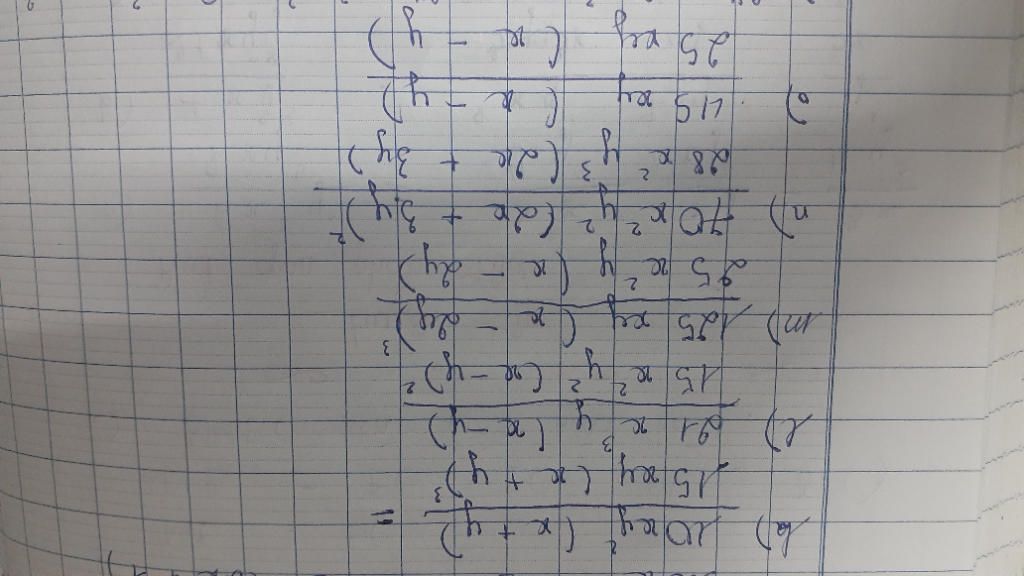 k) 10xy² (x + y) =
15xy (x + y)³
l) 21 x³ y (x - y)
15 x² y² (x - y)²
m) 125 xy (x - 2y)³
25 x² y (x - 2y)
n) 70 x² y² (2x + 3y)²
28 x² y³ (2x + 3y)
o) 45 xy (x - y)
25 xy (x - y)